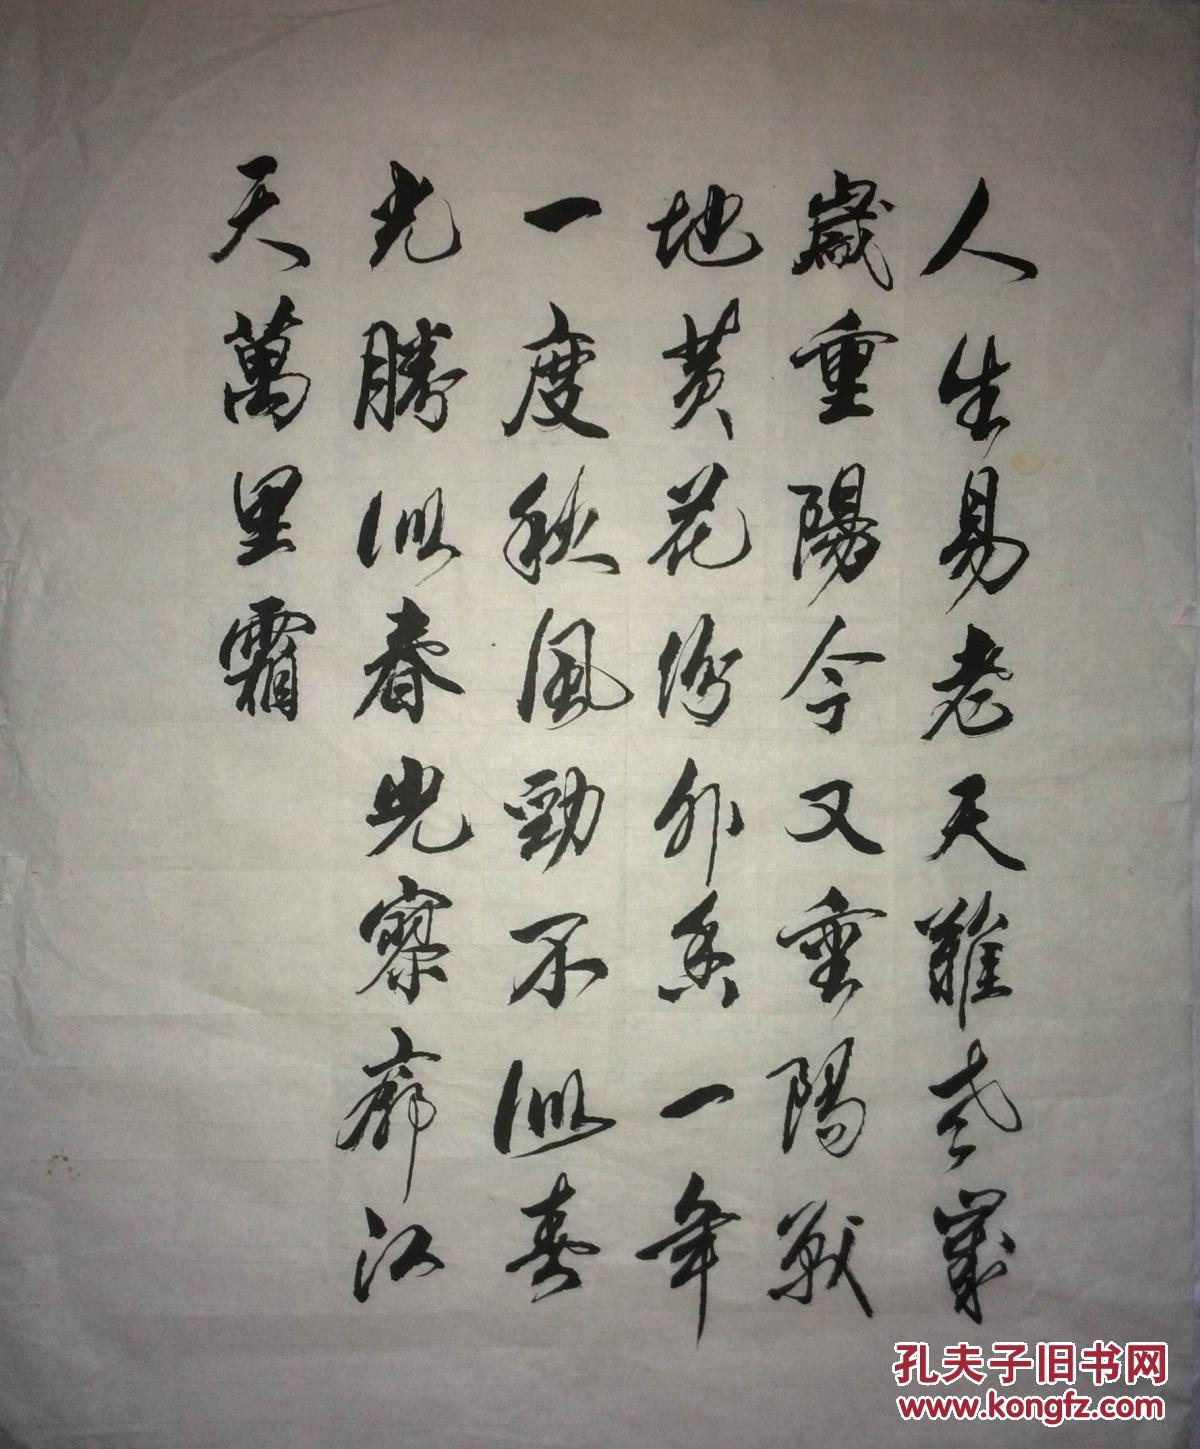 人生易老天難老歲
歲重陽今又重陽戰
地黃花分外香一年
一度秋風勁不似春
光勝似春光寥廓江
天萬里霜
孔夫子旧书网
www.kongfz.com